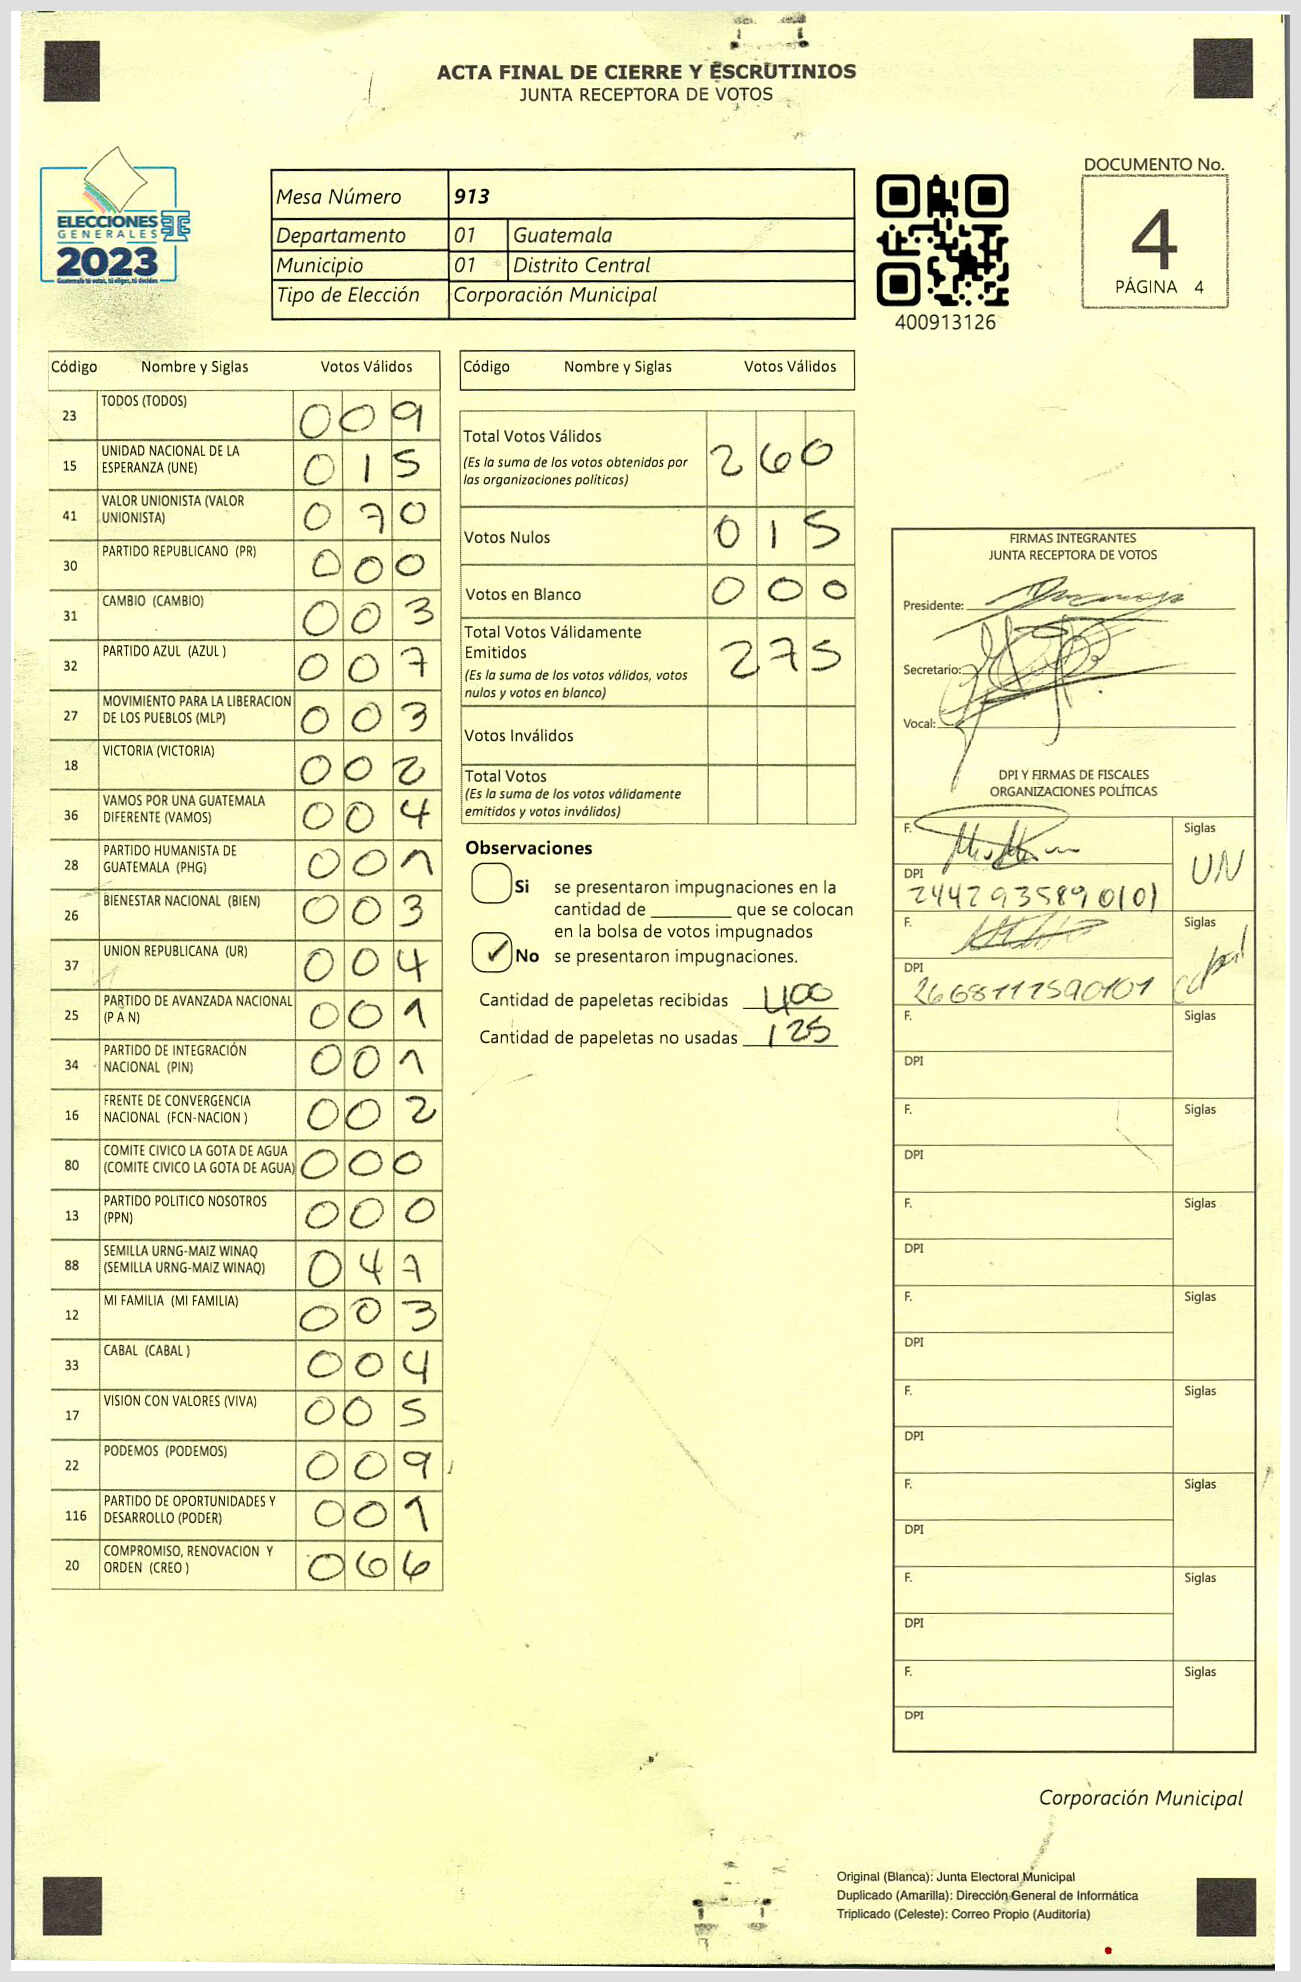 ACTA FINAL DE CIERRE Y ESCRUTINIOS
JUNTA RECEPTORA DE VOTOS
ELECCIONES
GENERALES
2023
Guatemala tú votas, tú eliges, tú decides
Mesa Número 913
Departamento 01 Guatemala
Municipio 01 Distrito Central
Tipo de Elección Corporación Municipal
400913126
DOCUMENTO No.
4
PÁGINA 4
Código Nombre y Siglas Votos Válidos
23 TODOS (TODOS) 009
15 UNIDAD NACIONAL DE LA
ESPERANZA (UNE) 015
41 VALOR UNIONISTA (VALOR
UNIONISTA) 070
30 PARTIDO REPUBLICANO (PR) 000
31 CAMBIO (CAMBIO) 003
32 PARTIDO AZUL (AZUL ) 007
27 MOVIMIENTO PARA LA LIBERACION
DE LOS PUEBLOS (MLP) 003
18 VICTORIA (VICTORIA) 002
36 VAMOS POR UNA GUATEMALA
DIFERENTE (VAMOS) 004
28 PARTIDO HUMANISTA DE
GUATEMALA (PHG) 001
26 BIENESTAR NACIONAL (BIEN) 003
37 UNION REPUBLICANA (UR) 004
25 PARTIDO DE AVANZADA NACIONAL
(P A N) 001
34 PARTIDO DE INTEGRACIÓN
NACIONAL (PIN) 001
16 FRENTE DE CONVERGENCIA
NACIONAL (FCN-NACION ) 002
80 COMITE CIVICO LA GOTA DE AGUA
(COMITE CIVICO LA GOTA DE AGUA) 000
13 PARTIDO POLITICO NOSOTROS
(PPN) 000
88 SEMILLA URNG-MAIZ WINAQ
(SEMILLA URNG-MAIZ WINAQ) 047
12 MI FAMILIA (MI FAMILIA) 003
33 CABAL (CABAL ) 004
17 VISION CON VALORES (VIVA) 005
22 PODEMOS (PODEMOS) 009
116 PARTIDO DE OPORTUNIDADES Y
DESARROLLO (PODER) 001
20 COMPROMISO, RENOVACION Y
ORDEN (CREO ) 066
Código Nombre y Siglas Votos Válidos
Total Votos Válidos 260
(Es la suma de los votos obtenidos por
las organizaciones políticas)
Votos Nulos 015
Votos en Blanco 000
Total Votos Válidamente
Emitidos 275
(Es la suma de los votos válidos, votos
nulos y votos en blanco)
Votos Inválidos
Total Votos
(Es la suma de los votos válidamente
emitidos y votos inválidos)
Observaciones
Si se presentaron impugnaciones en la
cantidad de ________ que se colocan
en la bolsa de votos impugnados
✓ No se presentaron impugnaciones.
Cantidad de papeletas recibidas 400
Cantidad de papeletas no usadas 125
FIRMAS INTEGRANTES
JUNTA RECEPTORA DE VOTOS
Presidente:
Secretario:
Vocal:
DPI Y FIRMAS DE FISCALES
ORGANIZACIONES POLÍTICAS
F. Siglas
UN
DPI
2442935890101
F. Siglas
DPI
F. Siglas
DPI
F. Siglas
DPI
F. Siglas
DPI
F. Siglas
DPI
F. Siglas
DPI
F. Siglas
DPI
F. Siglas
DPI
F. Siglas
DPI
Corporación Municipal
Original (Blanca): Junta Electoral Municipal
Duplicado (Amarilla): Dirección General de Informática
Triplicado (Celeste): Correo Propio (Auditoría)